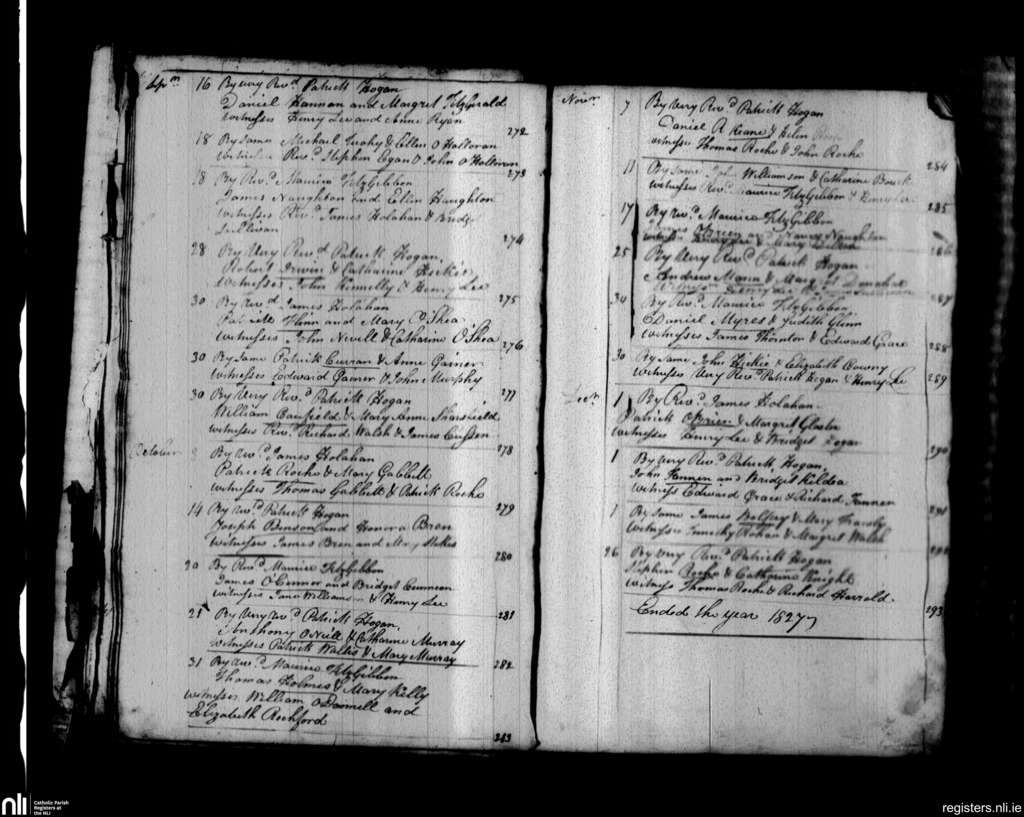 16 By very Revd Patrick Hogan
Daniel Hannan and Margret FitzGerald
witnesses Henry Lee and Anne Ryan
272
18 By same Michael Tuohy & Ellen O Halloran
witnesses Revd Stephen Egan & John O Halloran
273
18 By Revd Maurice FitzGibbon
James Naughton and Ellin Haughton
witnesses Revd James Holahan & Bridget
Sullivan
274
28 By Very Revd Patrick Hogan
Robert Irwin & Catharine Hickie
witnesses John Kennelly & Henry Lee
275
30 By Revd James Holahan
Patrick Flinn and Mary O'Shea
witnesses John Nevill & Catharine O'Shea
276
30 By Same Patrick Curran & Anne Gainer
witnesses Edward Gainer & John Murphy
277
30 By Very Revd Patrick Hogan
William and Mary Anne Sharsfield
witnesses Revd Richard Walsh & James Cussen
278
October
By Revd James Holahan
Patrick Roche & Mary Gabbett
witnesses Thomas Gabbett & Patrick Roche
279
14 By Revd Patrick Hogan
Joseph Benson and Honora Bren
witnesses James Bren and Mary Stokes
280
20 By Revd Maurice FitzGibbon
James O'Connor and Bridget Cunneen
witnesses Jane Williams & Henry Lee
281
21 By Very Revd Patrick Hogan
Anthony O Neill & Catharine Murray
witnesses Patrick Wallis & Mary Murray
282
31 By Revd Maurice FitzGibbon
Thomas Holmes & Mary Kelly
witnesses William O Donnell and
Elizabeth Rochford
283
Novr 7 By Very Revd Patrick Hogan
Daniel A Keane & Helen
witnesses Thomas Roche & John Roche
284
11 By same John Williamson & Catharine
witnesses Revd Maurice FitzGibbon & Henry Lee
285
17 By Revd Maurice FitzGibbon
James O'Brien and Nancy Naughton
witnesses Henry Lee & Mary
286
25 By Very Revd Patrick Hogan
Andrew & Mary
witness Henry Lee
287
By Revd Maurice FitzGibbon
Daniel Myres & Judith Glinn
witnesses James Thornton & Edward Grace
288
30 By same John Hickie & Elizabeth Downy
witnesses Very Revd Patrick Hogan & Henry Lee
289
Decr 1 By Revd James Holahan
Patrick O'Brien & Margret
witnesses Henry Lee & Bridget Hogan
290
1 By Very Revd Patrick Hogan
John Fannen and Bridget Kildea
witness Edward Grace & Richard Fannen
291
1 By same James & Mary
witnesses Timothy Hohan & Margret Walsh
26 By Very Revd Patrick Hogan
Stephen Roche & Catharine Knight
witness Thomas Roche & Richard Harrold
293
Ended the year 1827
nli
Catholic Parish
Registers at
the NLI
registers.nli.ie